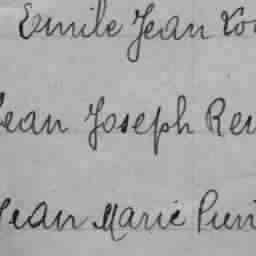 Emile Jean
Jean Joseph
Jean Marie